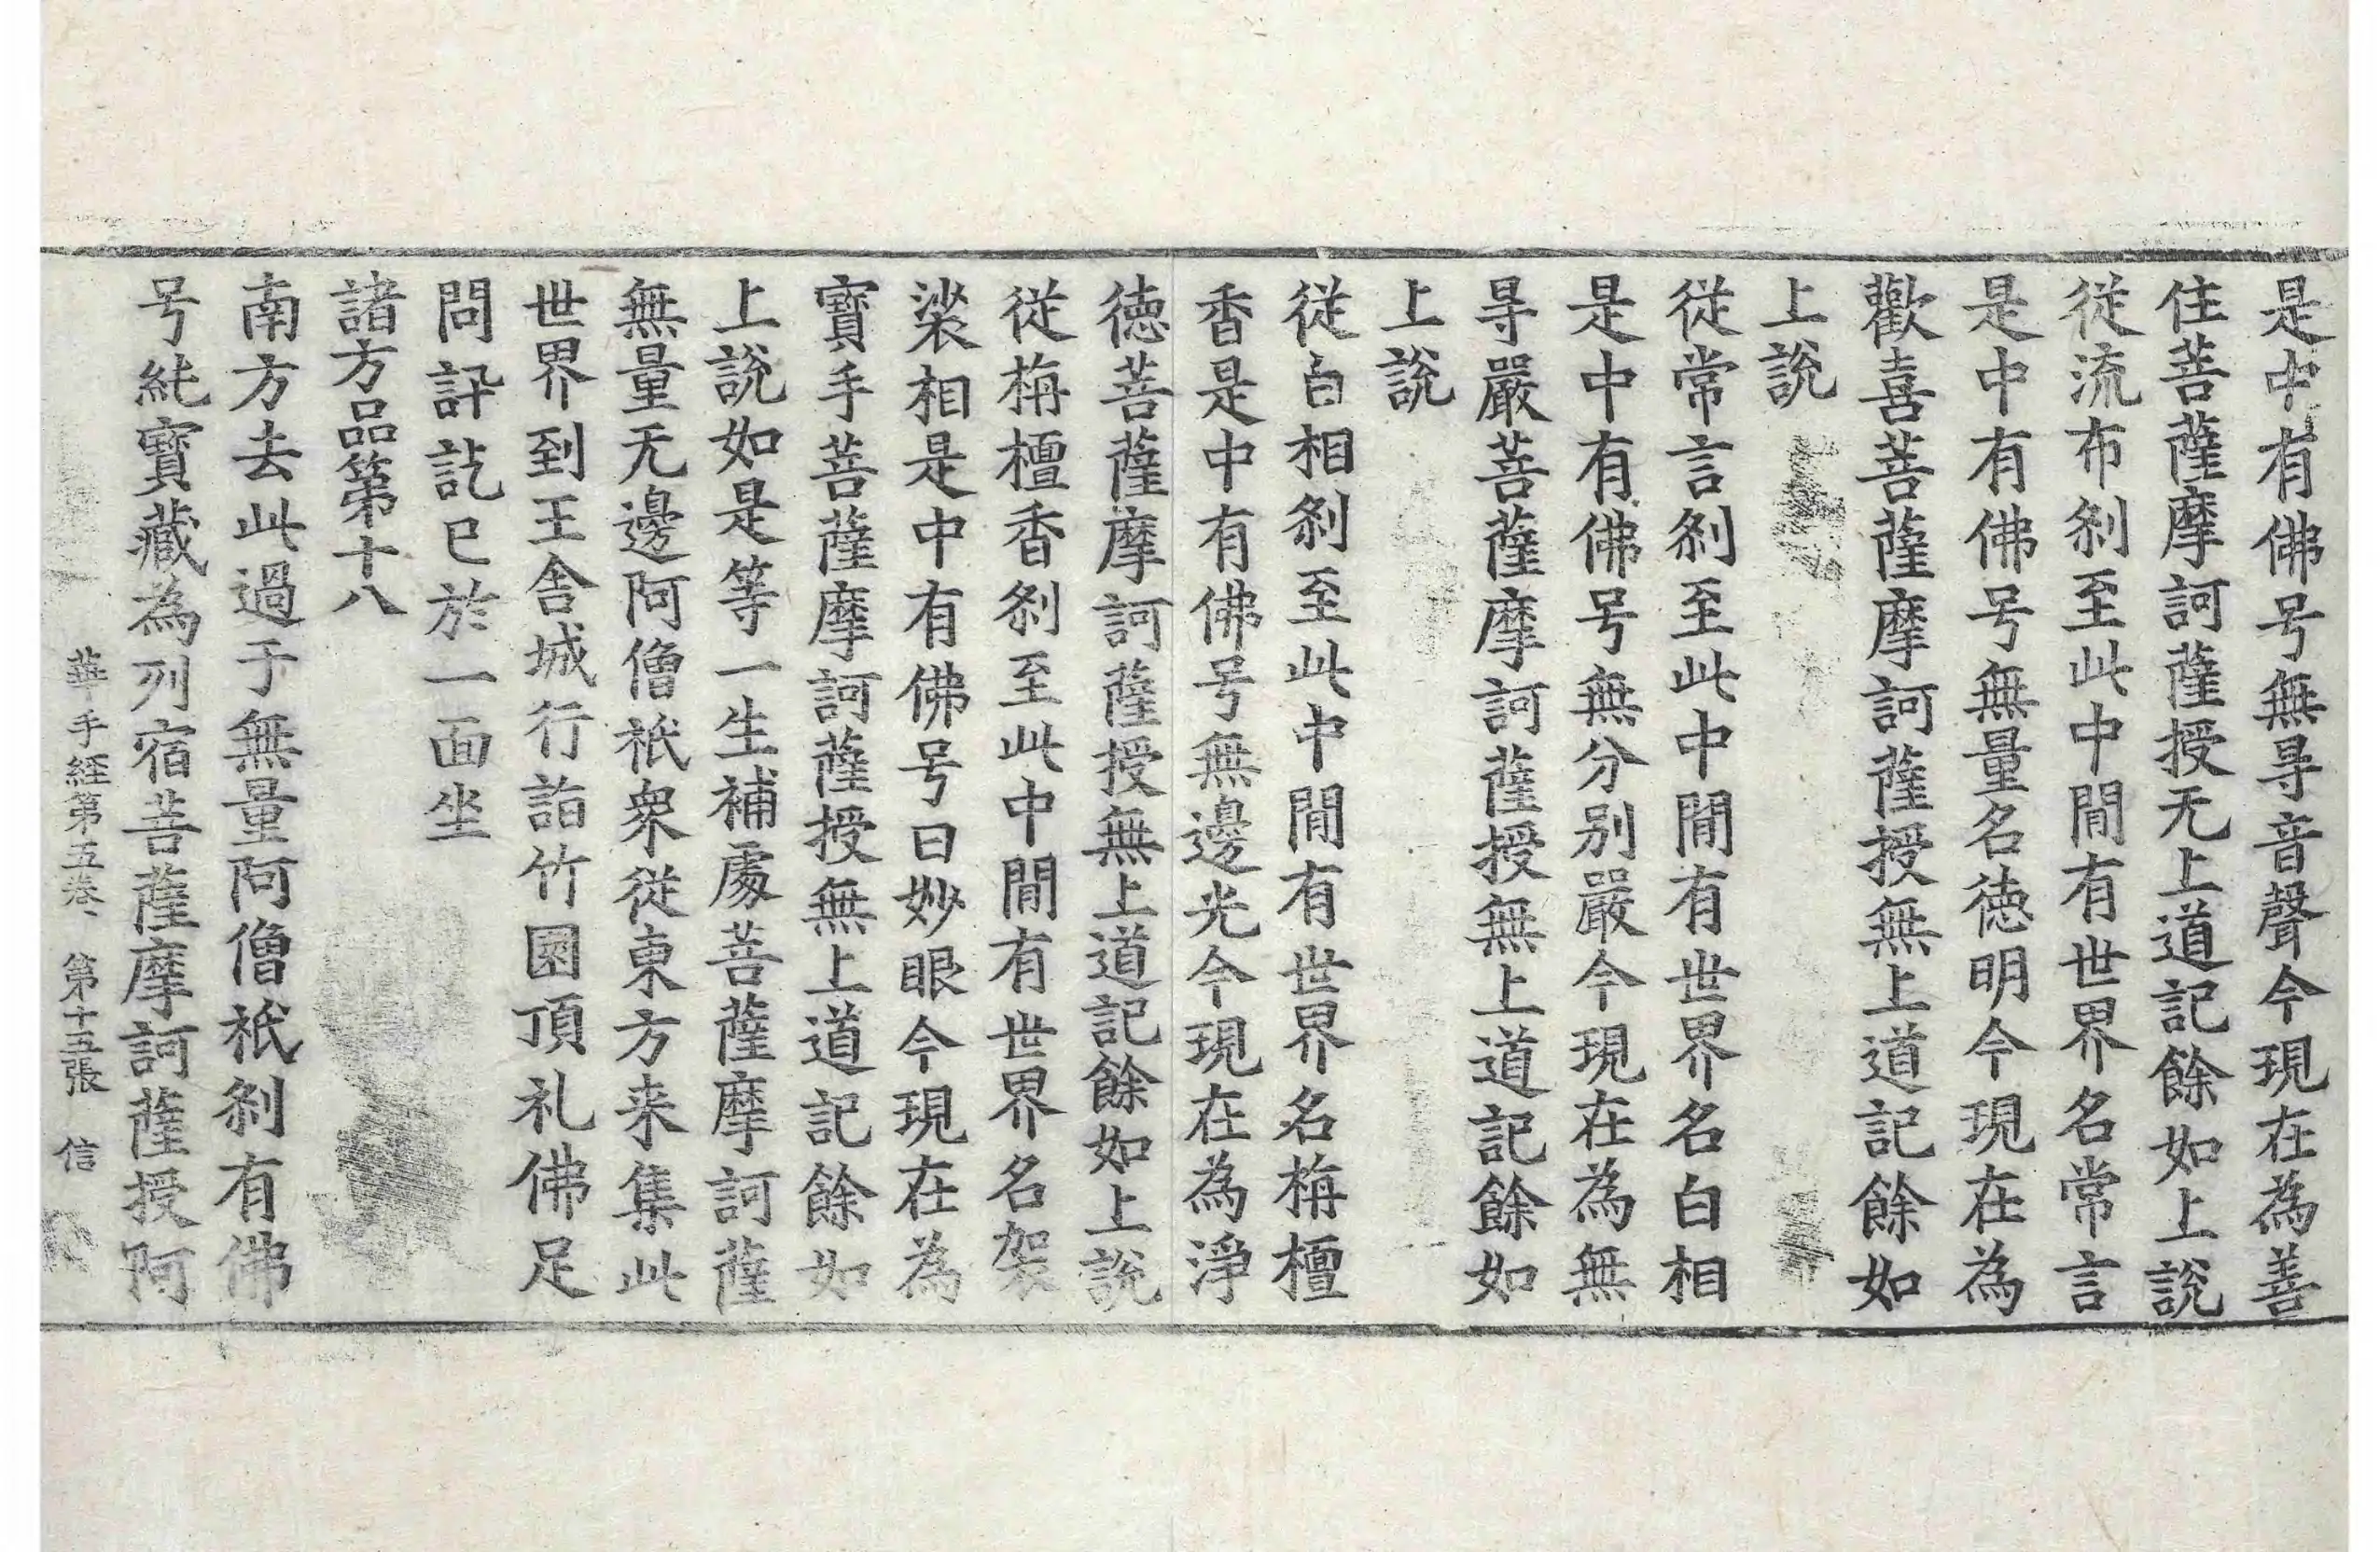 是中有佛号無㝵音聲今現在為善
住菩薩摩訶薩授无上道記餘如上說
從流布刹至此中間有世界名常言
是中有佛号無量名徳明今現在為
歡喜菩薩摩訶薩授無上道記餘如
上說
從常言刹至此中間有世界名白相
是中有佛号無分别嚴今現在為無
㝵嚴菩薩摩訶薩授無上道記餘如
上說
從白相刹至此中間有世界名栴檀
香是中有佛号無邊光今現在為淨
徳菩薩摩訶薩授無上道記餘如上說
從栴檀香刹至此中間有世界名袈
裟相是中有佛号曰妙眼今現在為
寶手菩薩摩訶薩授無上道記餘如
上說如是等一生補處菩薩摩訶薩
無量无邊阿僧祇衆從東方来集此
世界到王舍城行詣竹園頂礼佛足
問訊訖已於一面坐
諸方品第十八
南方去此過于無量阿僧祇刹有佛
号純寶藏為列宿菩薩摩訶薩授阿
華手経第五卷 第十五張 信